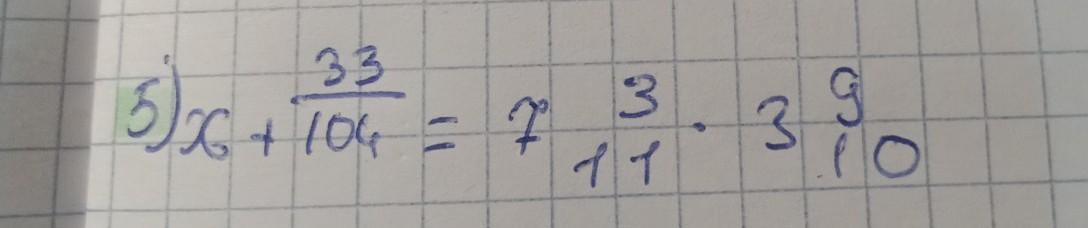 5) x + 33/104 = 7 3/11 · 3 9/10